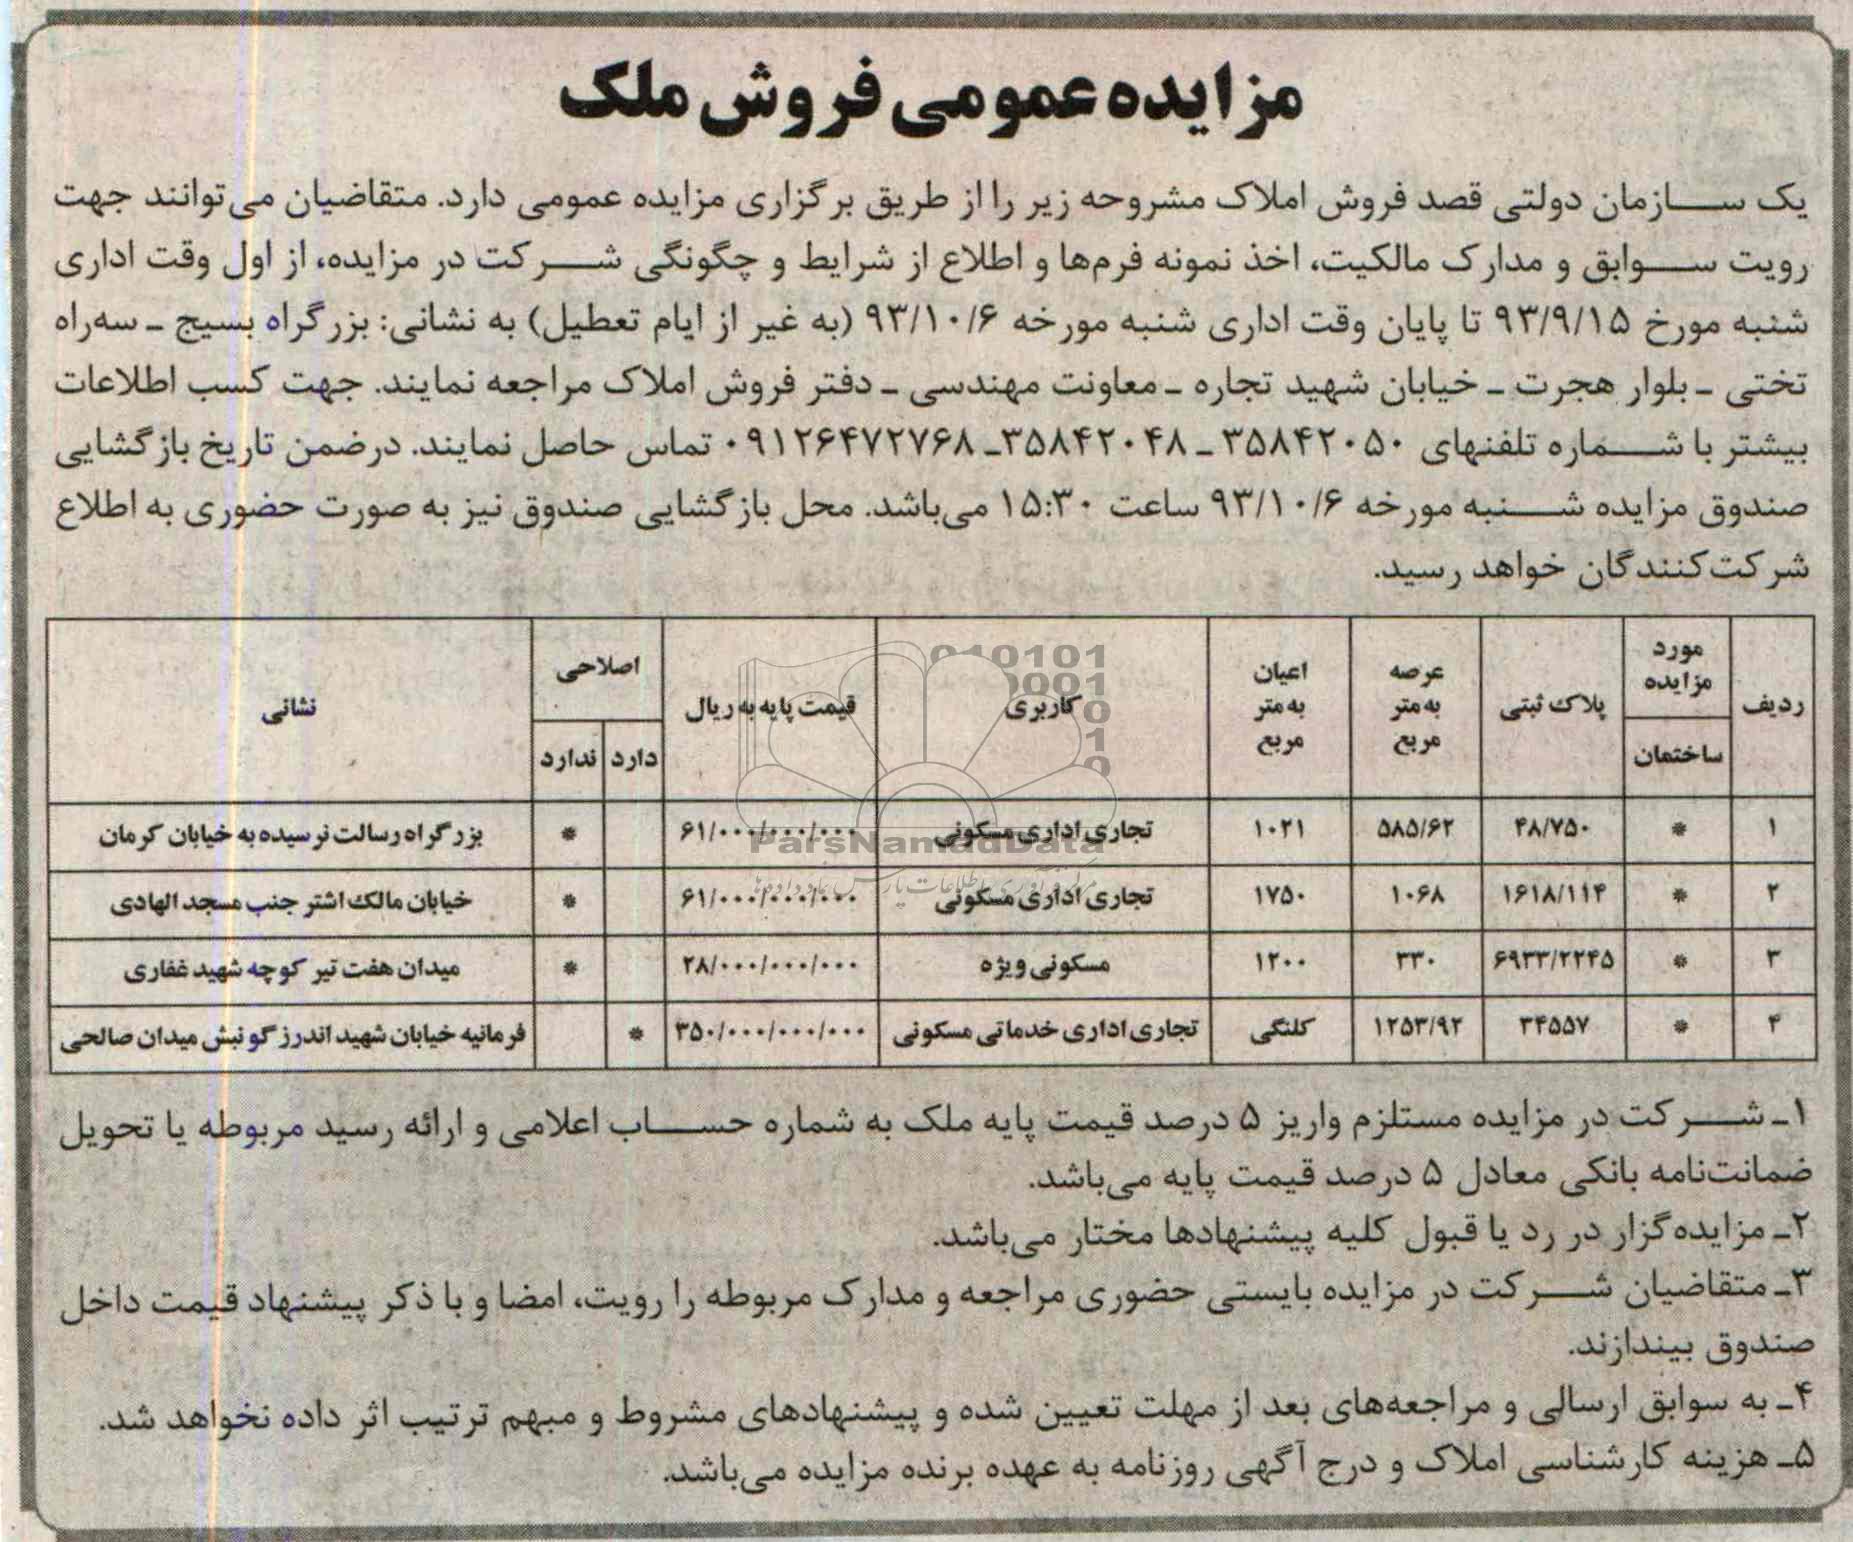 مزایده عمومی فروش ملک
یک سازمان دولتی قصد فروش املاک مشروحه زیر را از طریق برگزاری مزایده عمومی دارد. متقاضیان می‌توانند جهت
رویت سوابق و مدارک مالکیت، اخذ نمونه فرم‌ها و اطلاع از شرایط و چگونگی شرکت در مزایده، از اول وقت اداری
شنبه مورخ ۹۳/۹/۱۵ تا پایان وقت اداری شنبه مورخه ۹۳/۱۰/۶ (به غیر از ایام تعطیل) به نشانی: بزرگراه بسیج ـ سه‌راه
تختی ـ بلوار هجرت ـ خیابان شهید تجاره ـ معاونت مهندسی ـ دفتر فروش املاک مراجعه نمایند. جهت کسب اطلاعات
بیشتر با شماره تلفنهای ۳۵۸۴۲۰۵۰ ـ ۳۵۸۴۲۰۴۸ـ ۰۹۱۲۶۴۷۲۷۶۸ تماس حاصل نمایند. درضمن تاریخ بازگشایی
صندوق مزایده شنبه مورخه ۹۳/۱۰/۶ ساعت ۱۵:۳۰ می‌باشد. محل بازگشایی صندوق نیز به صورت حضوری به اطلاع
شرکت‌کنندگان خواهد رسید.
ردیف | مورد مزایده: ساختمان | پلاک ثبتی | عرصه به متر مربع | اعیان به متر مربع | کاربری | قیمت پایه به ریال | اصلاحی: دارد | ندارد | نشانی
۱ | * | ۴۸/۷۵۰ | ۵۸۵/۶۲ | ۱۰۲۱ | تجاری اداری مسکونی | ۶۱/۰۰۰/۰۰۰/۰۰۰ | | * | بزرگراه رسالت نرسیده به خیابان کرمان
۲ | * | ۱۶۱۸/۱۱۴ | ۱۰۶۸ | ۱۷۵۰ | تجاری اداری مسکونی | ۶۱/۰۰۰/۰۰۰/۰۰۰ | | * | خیابان مالک اشتر جنب مسجد الهادی
۳ | * | ۶۹۳۳/۲۲۴۵ | ۳۳۰ | ۱۲۰۰ | مسکونی ویژه | ۲۸/۰۰۰/۰۰۰/۰۰۰ | | * | میدان هفت تیر کوچه شهید غفاری
۴ | * | ۳۴۵۵۷ | ۱۲۵۳/۹۲ | کلنگی | تجاری اداری خدماتی مسکونی | ۳۵۰/۰۰۰/۰۰۰/۰۰۰ | * | | فرمانیه خیابان شهید اندرزگو نبش میدان صالحی
ParsNamadData
۱ـ شرکت در مزایده مستلزم واریز ۵ درصد قیمت پایه ملک به شماره حساب اعلامی و ارائه رسید مربوطه یا تحویل
ضمانت‌نامه بانکی معادل ۵ درصد قیمت پایه می‌باشد.
۲ـ مزایده‌گزار در رد یا قبول کلیه پیشنهادها مختار می‌باشد.
۳ـ متقاضیان شرکت در مزایده بایستی حضوری مراجعه و مدارک مربوطه را رویت، امضا و با ذکر پیشنهاد قیمت داخل
صندوق بیندازند.
۴ـ به سوابق ارسالی و مراجعه‌های بعد از مهلت تعیین شده و پیشنهادهای مشروط و مبهم ترتیب اثر داده نخواهد شد.
۵ـ هزینه کارشناسی املاک و درج آگهی روزنامه به عهده برنده مزایده می‌باشد.